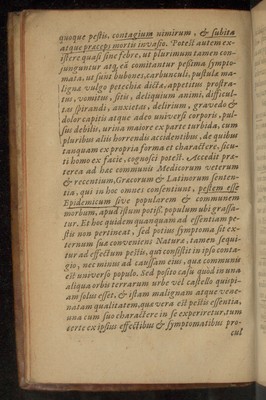 quoque pestis, contagium nimirum, & subita
atque præceps mortis invasio. Potest autem ex-
istere quasi sine febre, ut plurimum tamen con-
junguntur atq; eā comitantur pessima sympto-
mata, ut sunt bubones, carbunculi, pustulæ ma-
ligna vulgo petechia dicta, appetitus prostra-
tus, vomitus, sitis, deliquium animi, difficul-
tas spirandi, anxietas, delirium, gravedo &
dolor capitis atque adeo universi corporis, pul-
sus debilis, urina maiore ex parte turbida, cum
pluribus aliis horrendis accidentibus, de quibus
tanquam ex propria forma et charactere, sicu-
ti homo ex facie, cognosci potest. Accedit præ-
terea ad hæc communis Medicorum veterum
& recentium, Græcorum & Latinorum senten-
tia, qui in hoc omnes consentiunt, pestem esse
Epidemicum sive popularem & communem
morbum, apud istum potiss. populum ubi grassa-
tur. Et hoc quidem quanquam ad essentiam pe-
stis non pertineat, sed potius symptoma sit ex-
ternum sua conveniens Natura, tamen sequi-
tur ad effectum pestis, qua consistit in ipso conta-
gio, nec minus ad caussam eius, qua communis
est universo populo. Sed posito casu quod in una
aliqua orbis terrarum urbe vel castello quispi-
am solus esset, & istam malignam atque vene-
natam qualitatem, qua vera est pestis essentia,
una cum suo charactere in se experiretur, tum
certe ex ipsius effectibus & symptomatibus pro-
cul